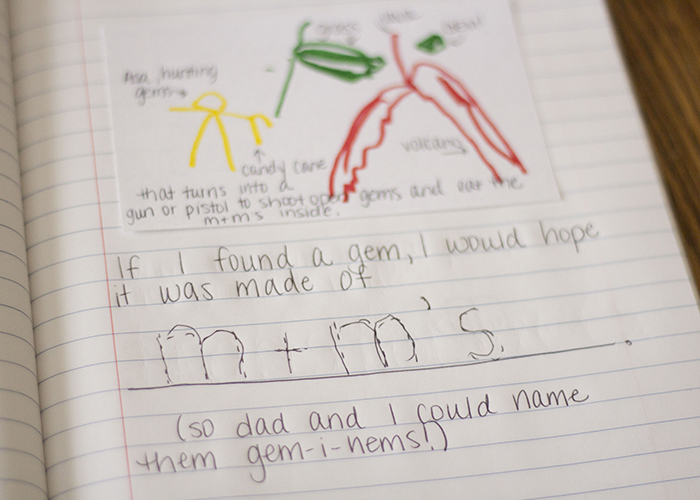 Asa hunting
gems
volcano
candy cane
that turns into a
gun or pistol to shoot open gems and eat the
m+m's inside.
If I found a gem, I would hope
it was made of
m+m's.
(so dad and I could name
them gem-i-nems!)